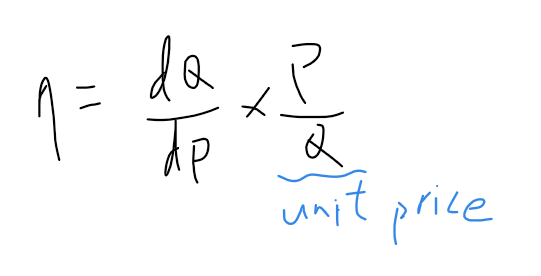 η = dQ/dp × P/Q
unit price